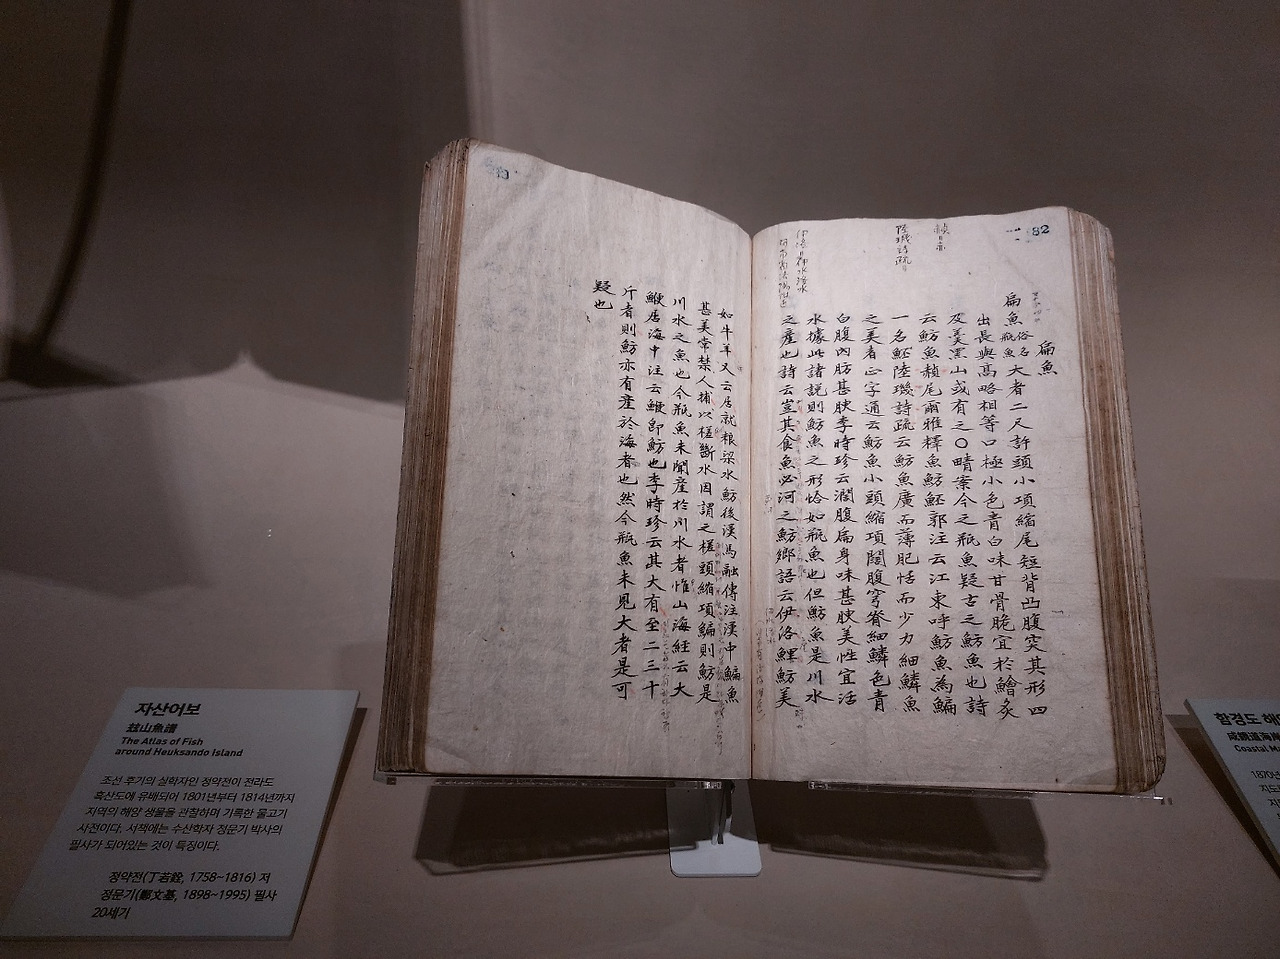 82
扁魚
扁魚 俗名瓶魚 大者二尺許頭小項縮尾短背凸腹突其形四
出長與高略相等口極小色青白味甘骨脆宜於鱠炙
及羹黑山或有之○晴案今之瓶魚疑古之魴魚也詩
云魴魚赬尾爾雅釋魚魴魾郭注云江東呼魴魚為鯿
一名魾陸璣詩疏云魴魚廣而薄肥恬而少力細鱗魚
之美者正字通云魴魚小頭縮項闊腹穹脊細鱗色青
白腹內肪甚腴李時珍云濶腹扁身味甚腴美性宜活
水據此諸說則魴魚之形恰如瓶魚也但魴魚是川水
之產也詩云豈其食魚必河之魴鄉語云伊洛鯉魴美
如牛羊又云居就粮梁水魴後漢馬融傳注漢中鯿魚
甚美常禁人捕以槎斷水因謂之槎頭縮項鯿則魴是
川水之魚也今瓶魚未聞產於川水者惟山海經云大
鯾居海中注云鯾即魴也李時珍云其大有至二三十
斤者則魴亦有產於海者也然今瓶魚未見大者是可
疑也
陸璣詩疏曰
자산어보
玆山魚譜
The Atlas of Fish
around Heuksando Island
조선 후기의 실학자인 정약전이 전라도
흑산도에 유배되어 1801년부터 1814년까지
지역의 해양 생물을 관찰하며 기록한 물고기
사전이다. 서책에는 수산학자 정문기 박사의
필사가 되어있는 것이 특징이다.
정약전(丁若銓, 1758~1816) 저
정문기(鄭文基, 1898~1995) 필사
20세기
함경도 해
咸鏡道海
Coastal M
1870년
지도